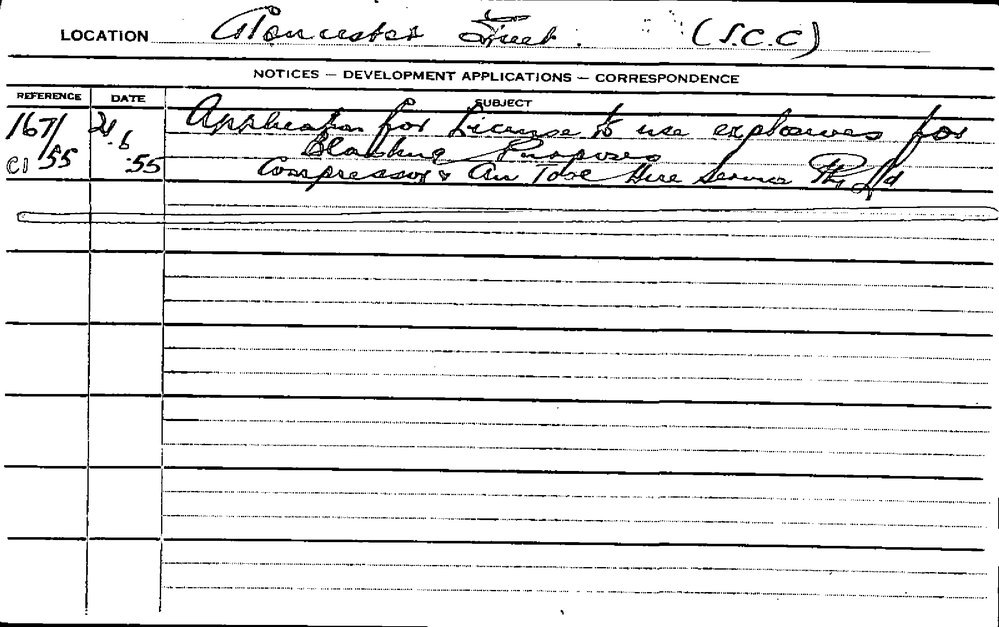 LOCATION Gloucester Street. (S.C.C)
NOTICES — DEVELOPMENT APPLICATIONS — CORRESPONDENCE
REFERENCE DATE SUBJECT
167/ 21.6 Application for License to use explosives for
C1 55 .55 Blasting Purposes
Compressor & Air Tool Hire Service Pty Ltd